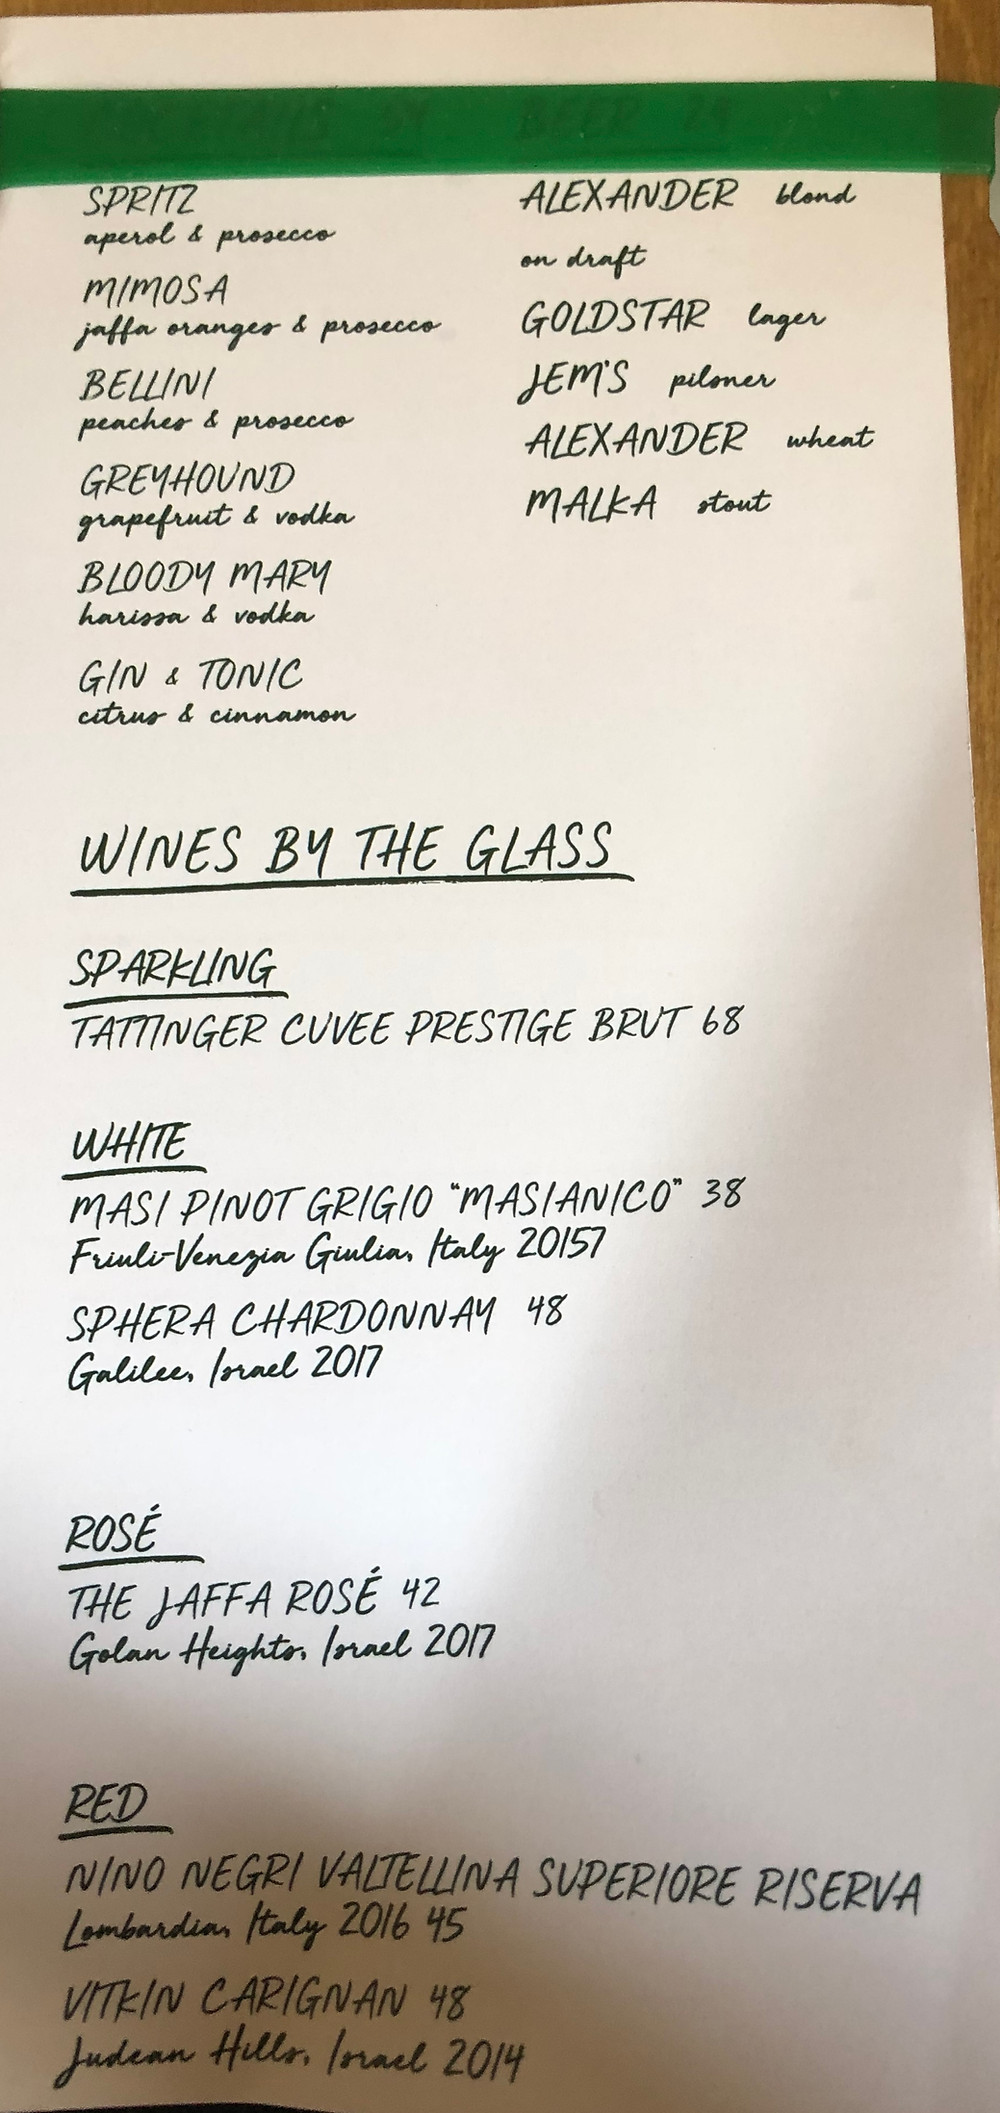 BEER 29
SPRITZ
aperol & prosecco
MIMOSA
jaffa oranges & prosecco
BELLINI
peaches & prosecco
GREYHOUND
grapefruit & vodka
BLOODY MARY
harissa & vodka
GIN & TONIC
citrus & cinnamon
ALEXANDER blond
on draft
GOLDSTAR lager
JEM'S pilsner
ALEXANDER wheat
MALKA stout
WINES BY THE GLASS
SPARKLING
TATTINGER CUVEE PRESTIGE BRUT 68
WHITE
MASI PINOT GRIGIO "MASIANICO" 38
Friuli-Venezia Giulia, Italy 20157
SPHERA CHARDONNAY 48
Galilee, Israel 2017
ROSÉ
THE JAFFA ROSÉ 42
Golan Heights, Israel 2017
RED
NINO NEGRI VALTELLINA SUPERIORE RISERVA
Lombardia, Italy 2016 45
VITKIN CARIGNAN 48
Judean Hills, Israel 2014